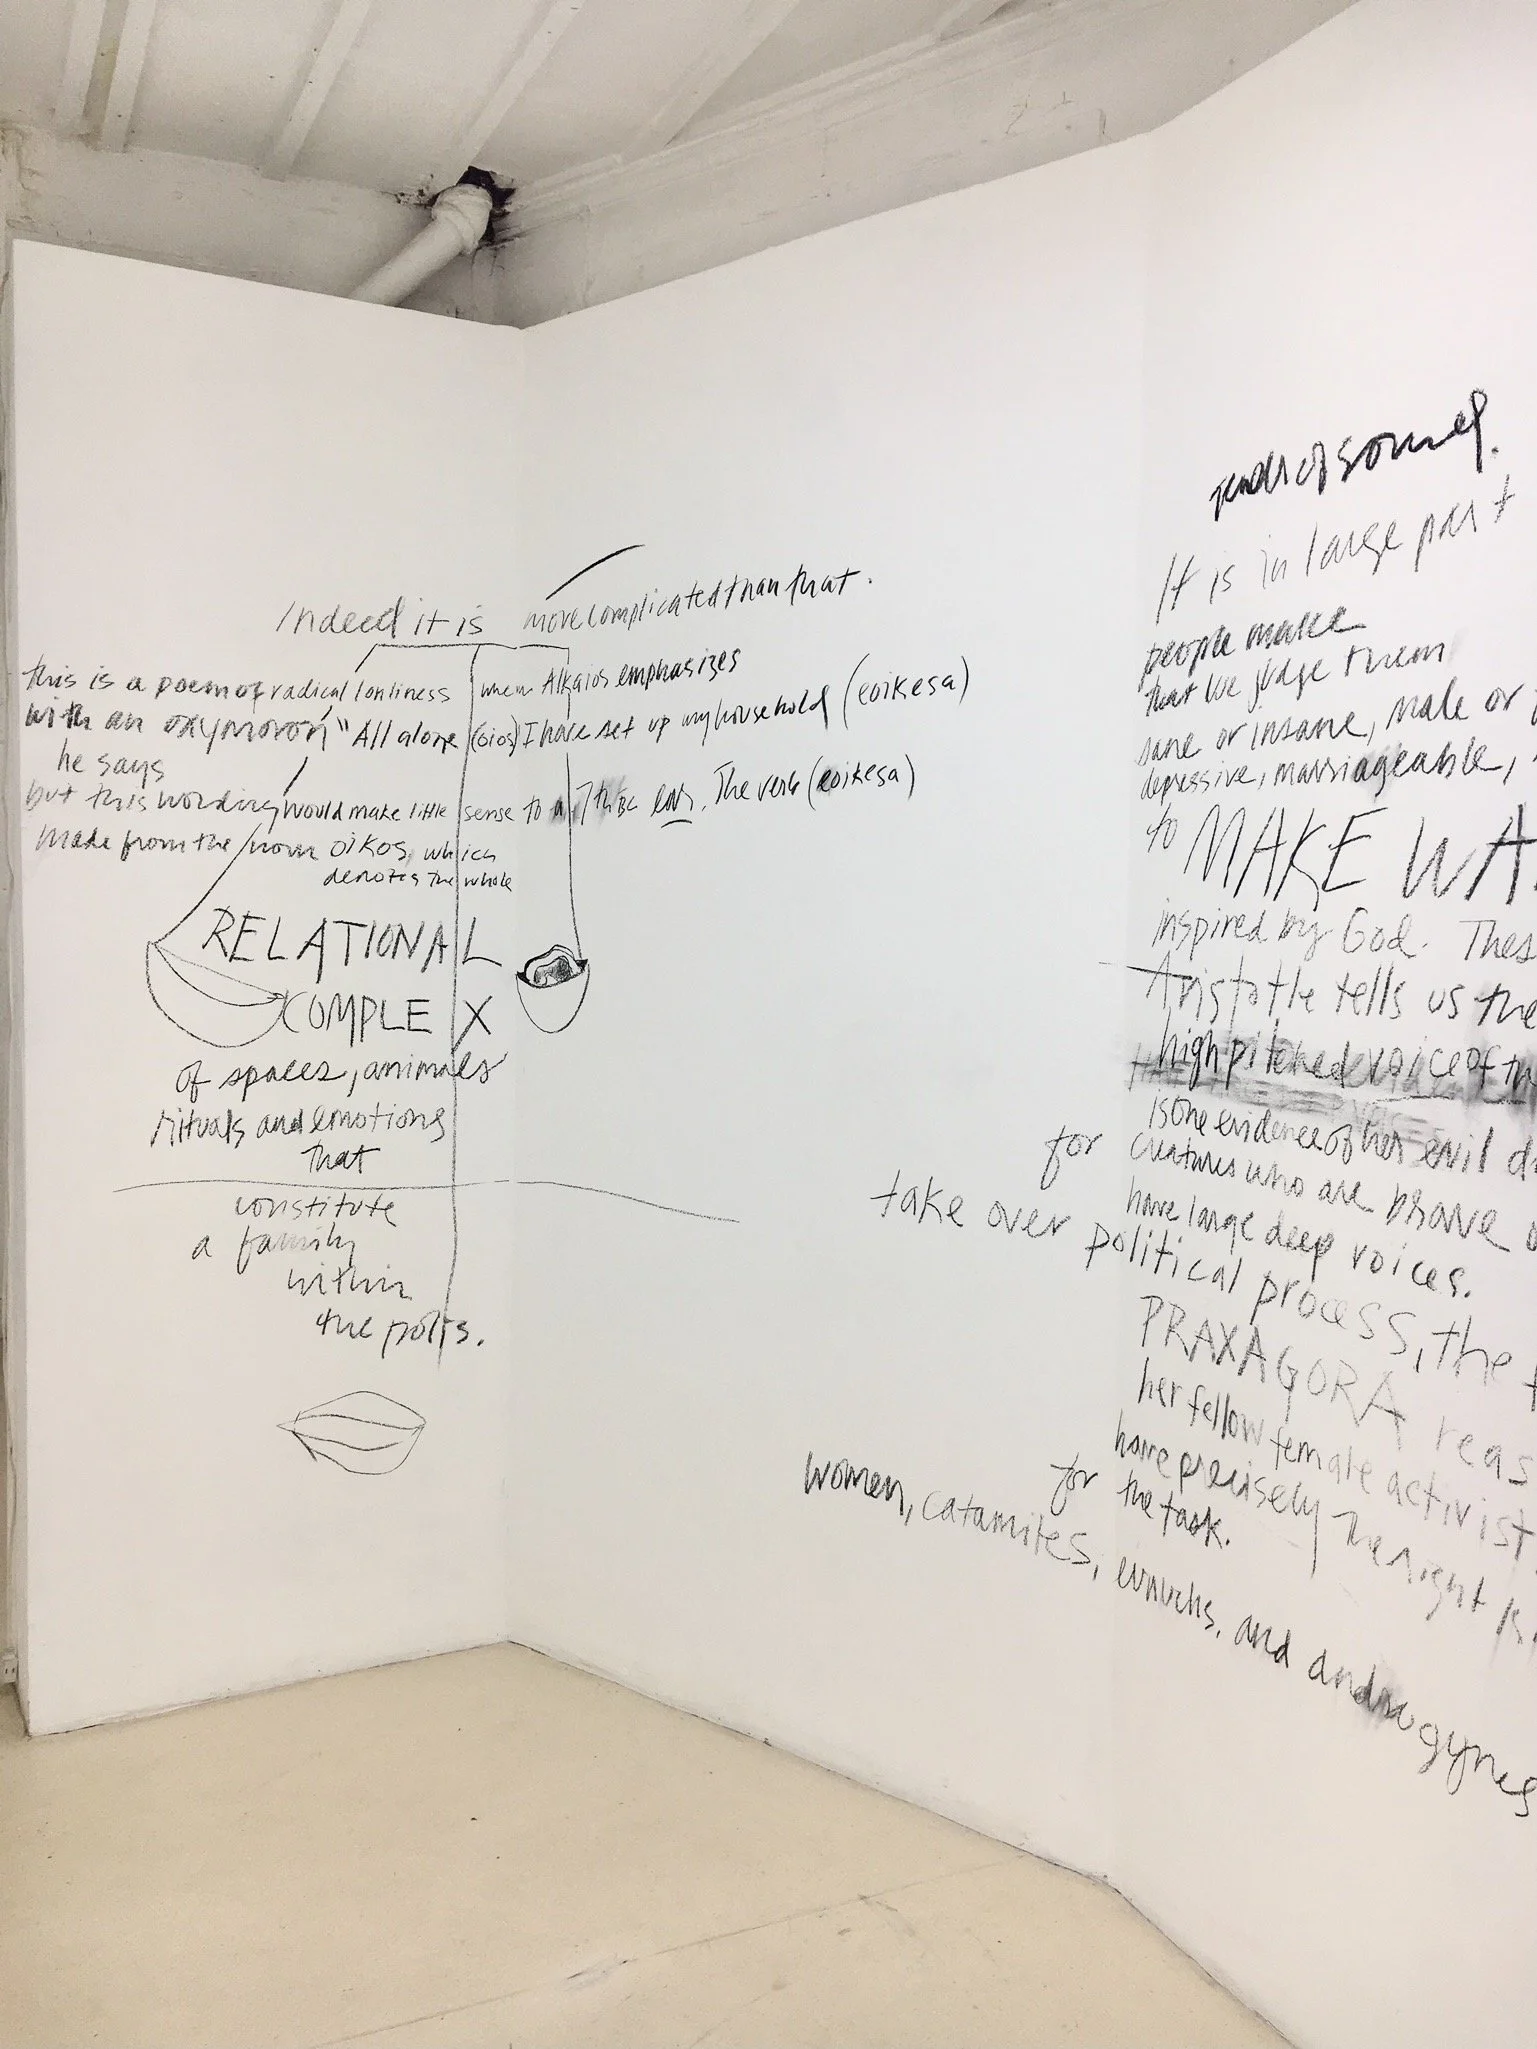 Indeed it is more complicated than that.
this is a poem of radical lonliness when Alkaios emphasizes
with an oxymoron "All alone (oios) I have set up my household (eoikesa)
he says
but this wording would make little sense to a 7th BC ear. The verb (eoikesa)
made from the noun OIKOS, which
denotes the whole
RELATIONAL
COMPLEX
of spaces, animals
rituals and emotions
that
constitute
a family
within
the polis.
of sound.
It is in large part
people make
that we judge them
sane or insane, male or
depressive, marriageable,
to MAKE WA
inspired by God. Thes
Aristotle tells us the
high pitched voice of th
is one evidence of her evil d
for creatures who are brave o
have large deep voices.
take over political process, the
PRAXAGORA reas
her fellow female activist
have precisely the right
for the task.
women, catamites, eunuchs, and androgynes